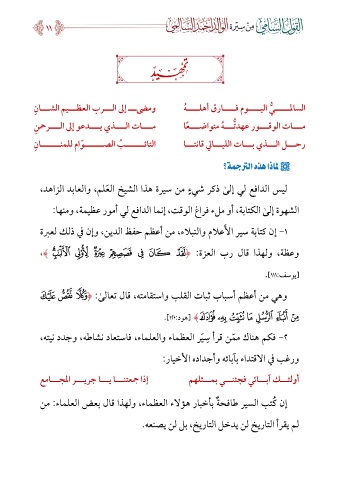 القول السامي من سيرة الوالد أحمد السالمي
١١
تمهيد
السالميُّ اليوم فارق أهله ومضى إلى الرب العظيم الشان
مات الوقور عهدتُّهُ متواضعًا مات الذي يدعو إلى الرحمن
رحل الذي بات الليالي قانتا التائبُ الصوّام للمنان
لماذا هذه الترجمة؟
ليس الدافع لي إلىٰ ذكر شيءٍ من سيرة هذا الشيخ العَلم، والعابد الزاهد،
الشهوة إلىٰ الكتابة، أو ملء فراغ الوقت، إنما الدافع لي أمور عظيمة، ومنها:
١- إن كتابة سير الأعلام والنبلاء، من أعظم حفظ الدين، وإن في ذلك لعبرة
وعظة، ولهذا قال رب العزة: ﴿لَقَدْ كَانَ فِي قَصَصِهِمْ عِبْرَةٌ لِّأُولِي الْأَلْبَابِ﴾،
[يوسف:١١١].
وهي من أعظم أسباب ثبات القلب واستقامته، قال تعالىٰ: ﴿وَكُلًّا نَّقُصُّ عَلَيْكَ
مِنْ أَنبَاءِ الرُّسُلِ مَا نُثَبِّتُ بِهِ فُؤَادَكَ﴾ [هود:١٢٠].
٢- فكم هناك ممّن قرأ سِيَر العظماء والعلماء، فاستعاد نشاطه، وجدد نيته،
ورغب في الاقتداء بآبائه وأجداده الأخيار:
أولئك آبائي فجئني بمثلهم إذا جمعتنا يا جرير المجامع
إن كُتب السير طافحةٌ بأخبار هؤلاء العظماء، ولهذا قال بعض العلماء: من
لم يقرأ التاريخ لن يدخل التاريخ، بل لن يصنعه.